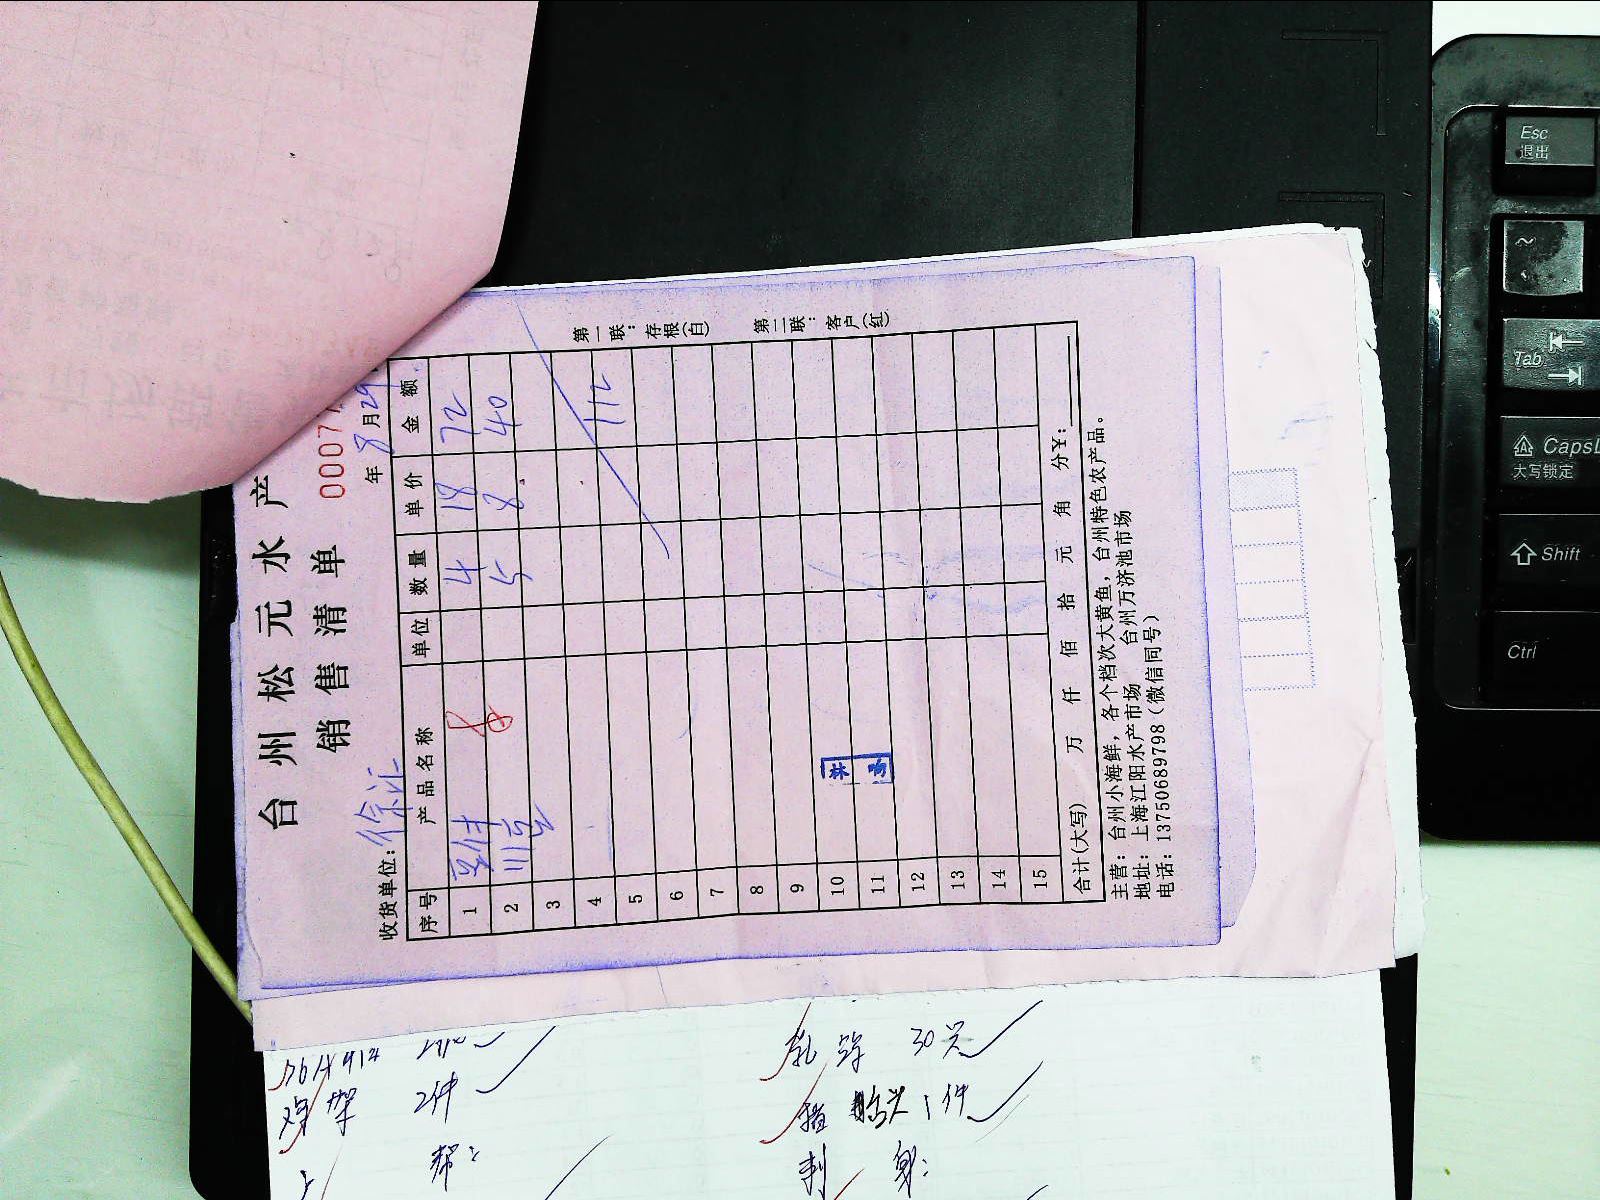 台州松元水产
销售清单
0007
收货单位：徐记
年8月29
序号 产品名称 单位 数量 单价 金额
1 4 18 72
2 5 8 40
3
4 112
5
6
7
8
9
10
11
12
13
14
15
合计(大写) 万 仟 佰 拾 元 角 分¥:
主营：台州小海鲜，各个档次大黄鱼，台州特色农产品。
地址：上海江阳水产市场 台州万济池市场
电话：13750689798（微信同号）
第一联：存根(白)
第二联：客户(红)
鸡架 2件
乳鸽 30只
1件
Esc
退出
~
Tab
CapsL
大写锁定
Shift
Ctrl